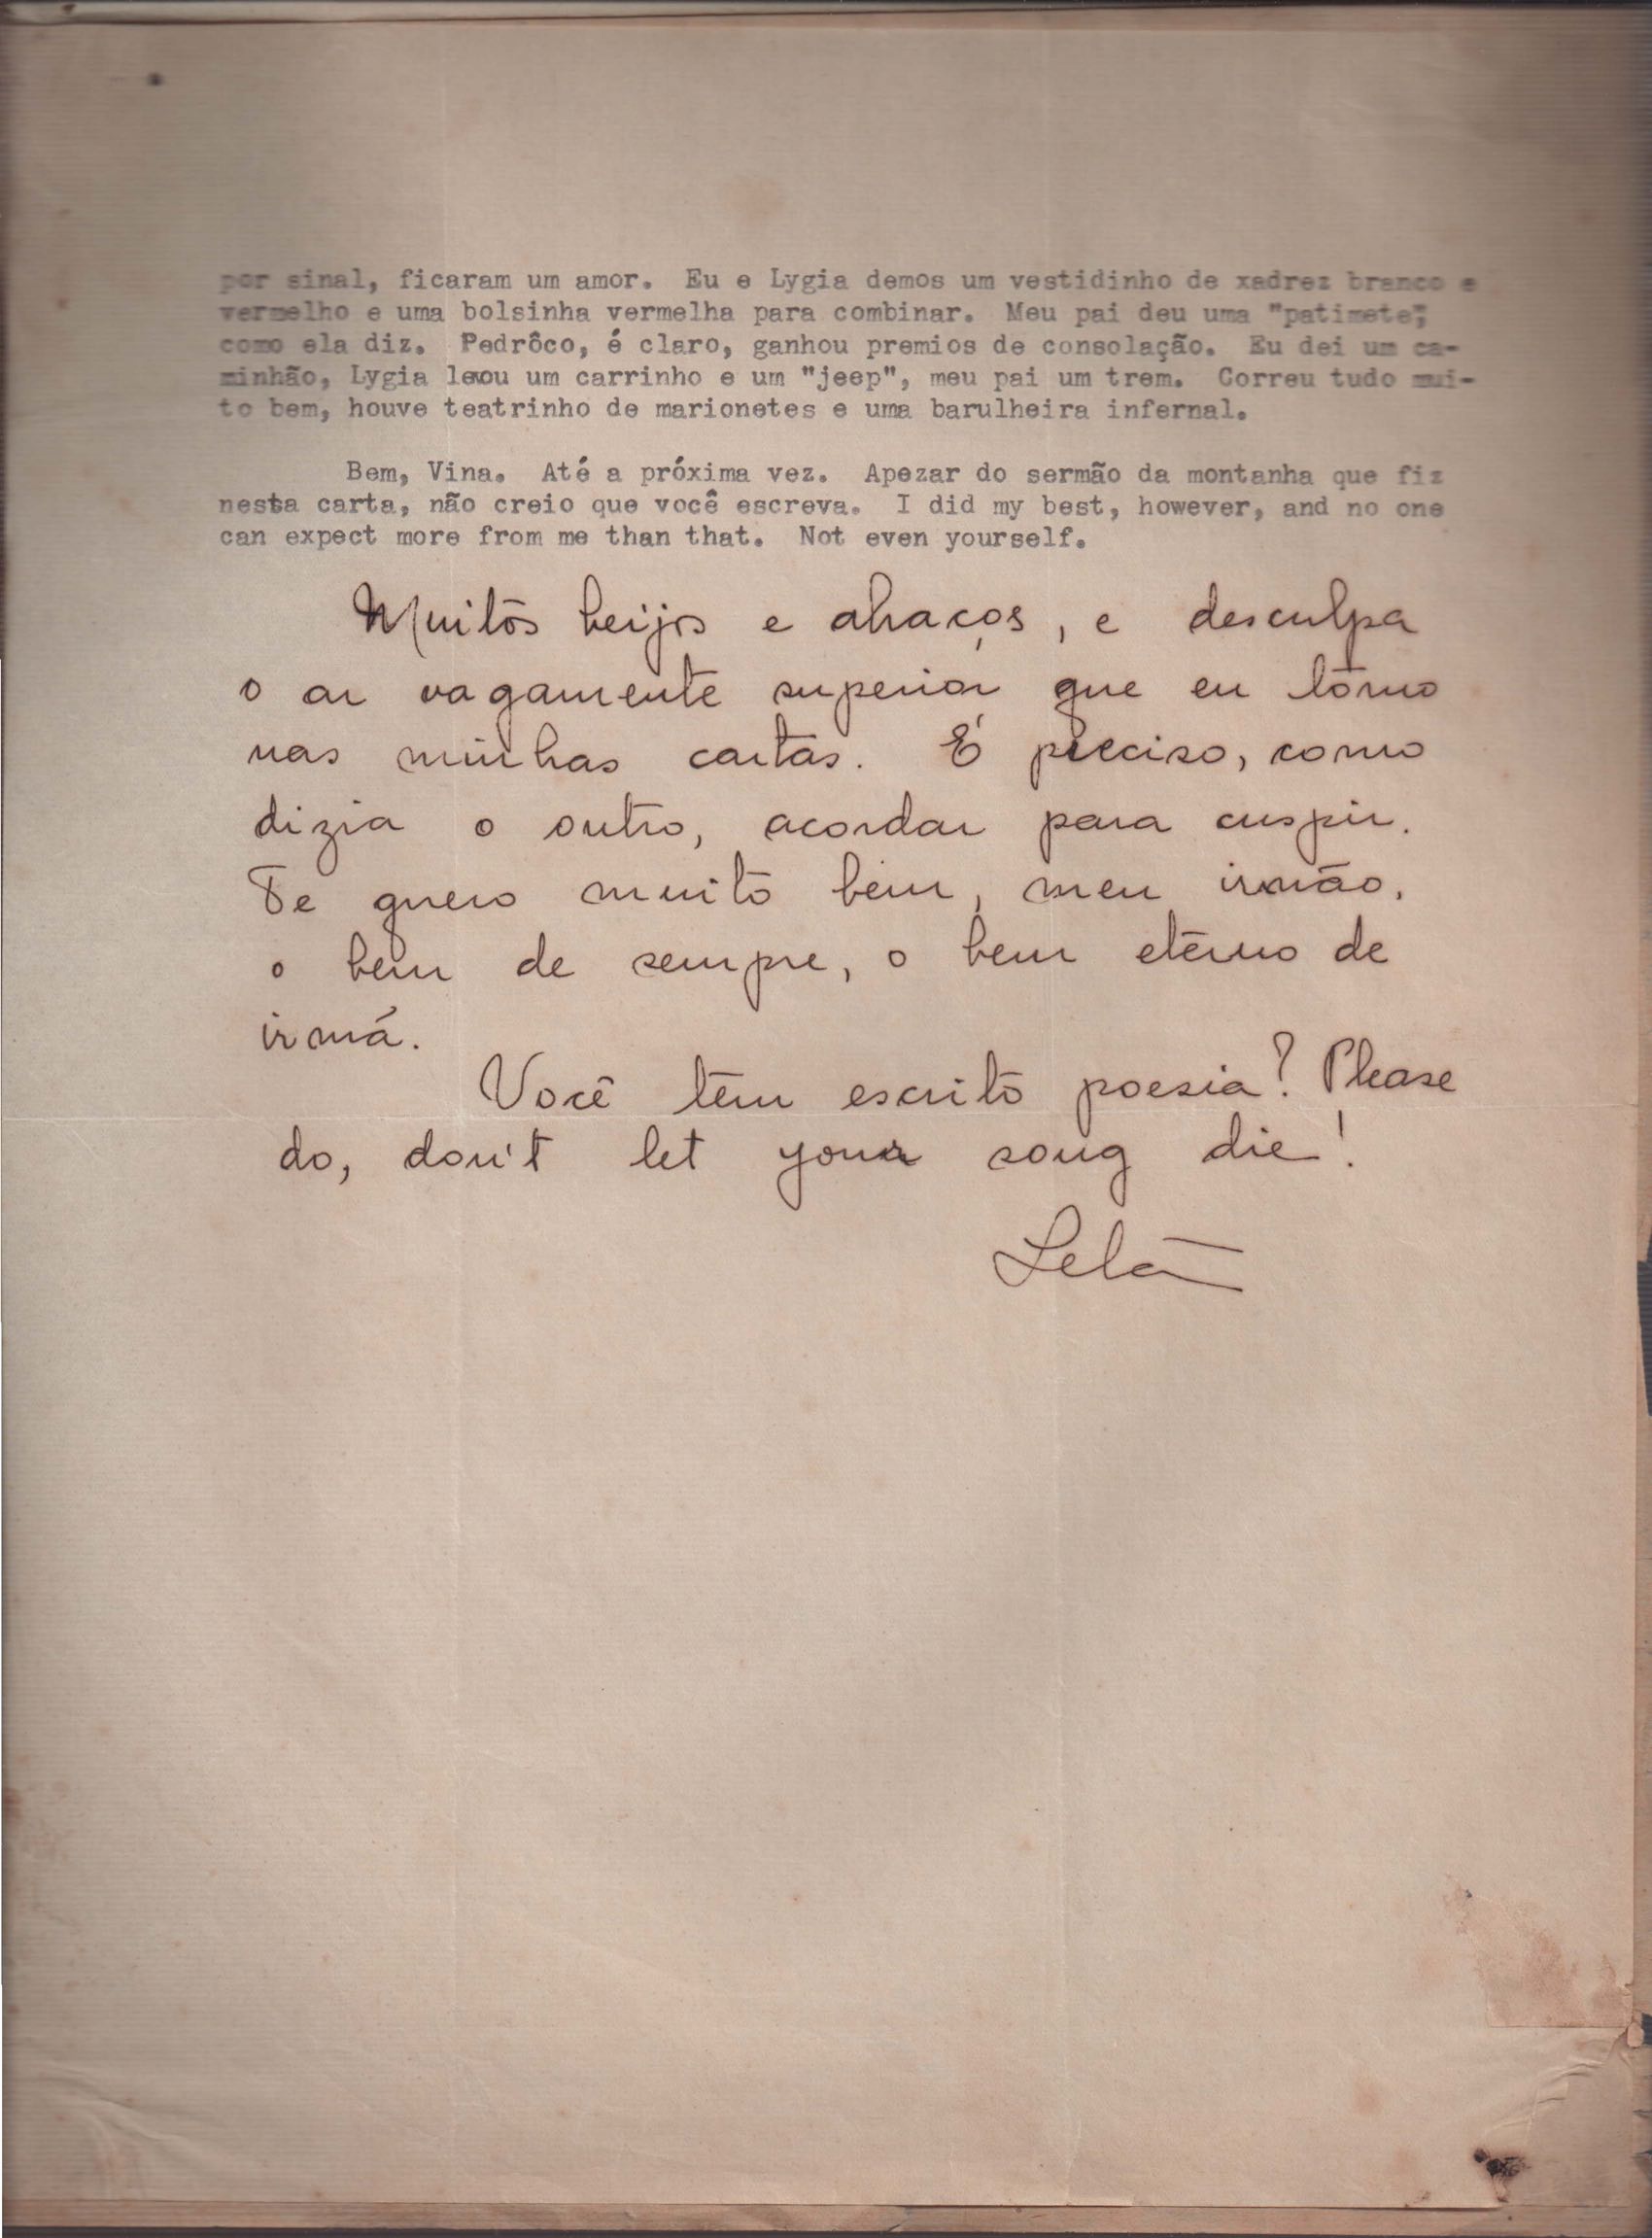 por sinal, ficaram um amor. Eu e Lygia demos um vestidinho de xadrez branco e
vermelho e uma bolsinha vermelha para combinar. Meu pai deu uma "patinete",
como ela diz. Pedrôco, é claro, ganhou premios de consolação. Eu dei um ca-
minhão, Lygia levou um carrinho e um "jeep", meu pai um trem. Correu tudo mui-
to bem, houve teatrinho de marionetes e uma barulheira infernal.
Bem, Vina. Até a próxima vez. Apezar do sermão da montanha que fiz
nesta carta, não creio que você escreva. I did my best, however, and no one
can expect more from me than that. Not even yourself.
Muitos beijos e abraços, e desculpa
o ar vagamente superior que eu tomo
nas minhas cartas. É preciso, como
dizia o outro, acordar para cuspir.
Te quero muito bem, meu irmão,
o bem de sempre, o bem eterno de
irmã.
Você tem escrito poesia? Please
do, don't let your song die!
Leta